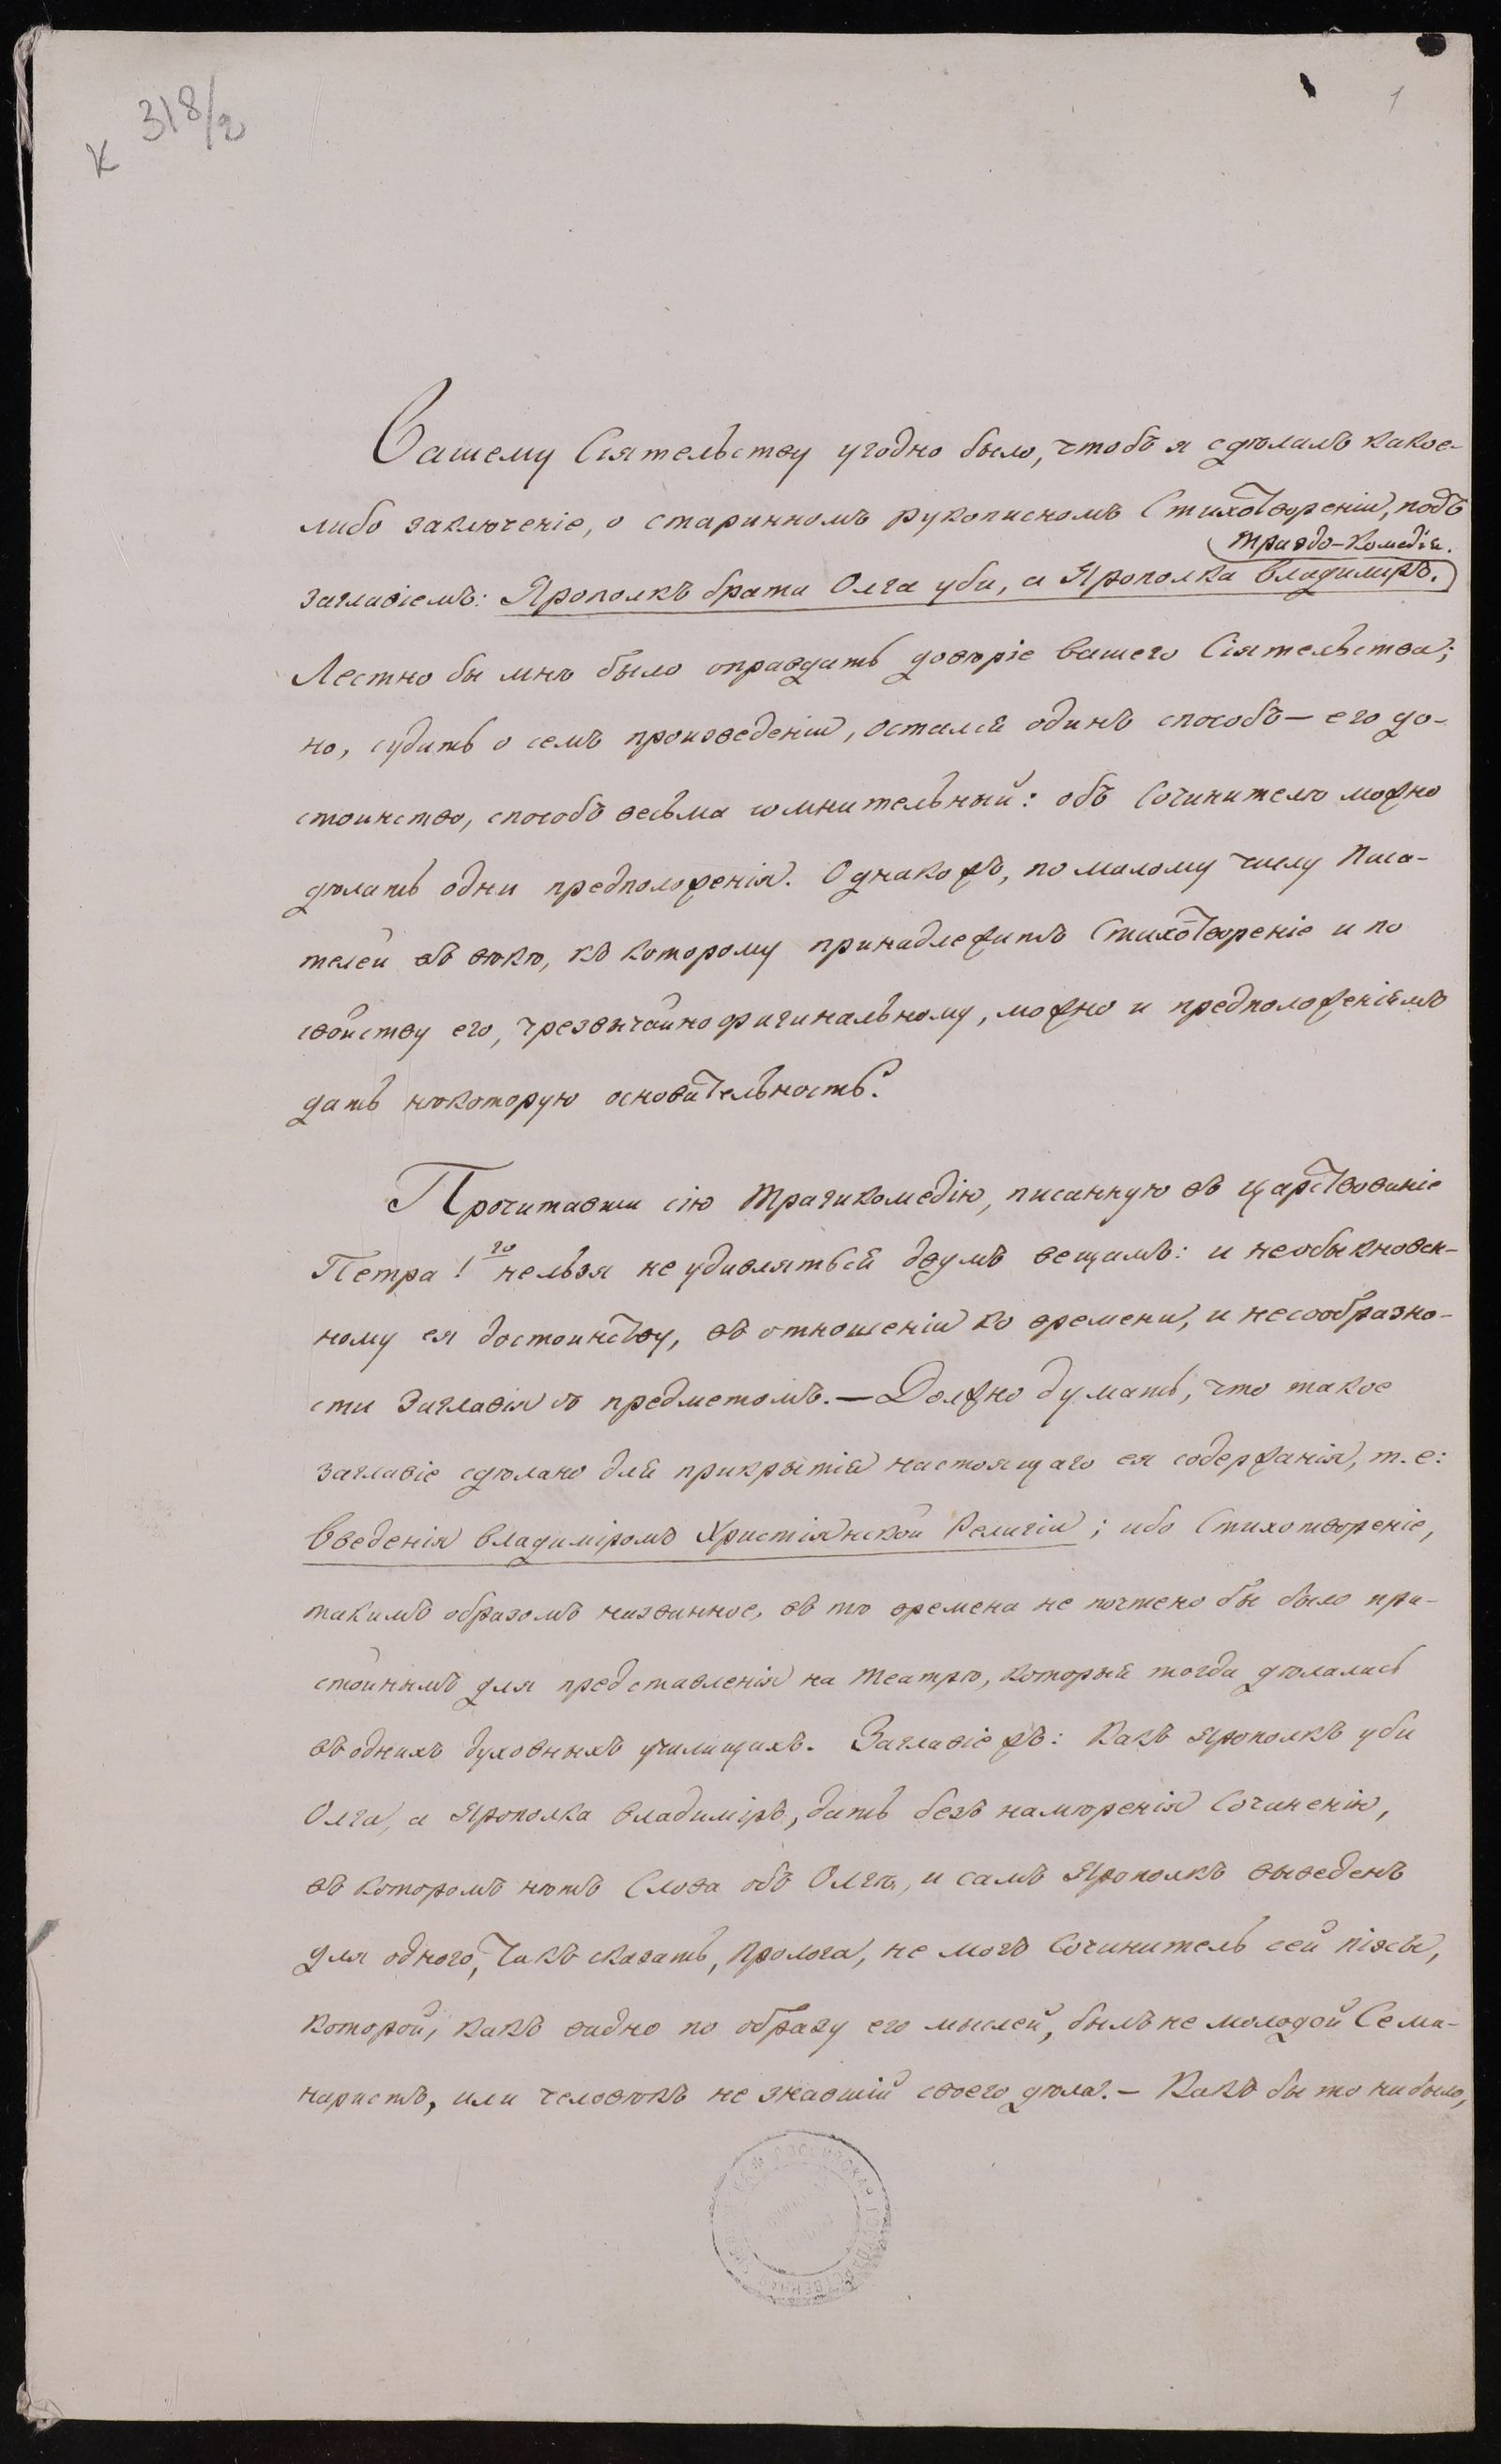 К 318/2
1
Вашему Сіятельству угодно было, чтобъ я сдѣлалъ какое-
либо заключеніе, о старинномъ рукописномъ Стихотвореніи, подъ
Траэдо-Комедія.
заглавіемъ: Ярополкъ брата Олга уби, а Ярополка Владимиръ.
Лестно бы мнѣ было оправдать довѣріе вашего Сіятельства;
но, судить о семъ произведеніи, остался одинъ способъ — его до-
стоинство, способъ весьма сомнительный: объ Сочинителѣ можно
дѣлать одни предположенія. Однакожъ, по малому числу Писа-
телей въ вѣкѣ, къ которому принадлежитъ Стихотвореніе и по
свойству его, чрезвычайно оригинальному, можно и предположеніямъ
дать нѣкоторую основательность.
Прочитавши сію Трагикомедію, писанную въ царствованіе
Петра I го нельзя не удивляться двумъ вещамъ: и необыкновен-
ному ея достоинству, въ отношеніи ко времени, и несообразно-
сти Заглавія съ предметомъ. — Должно думать, что такое
заглавіе сдѣлано для прикрытія настоящаго ея содержанія, т. е:
Введенія Владиміромъ Христіянской Религіи; ибо Стихотвореніе,
такимъ образомъ названное, въ то времена не почтено бы было при-
стойнымъ для представленія на Театрѣ, который тогда дѣлались
въ однихъ духовныхъ училищахъ. Заглавіе жъ: Какъ Ярополкъ уби
Олга, а Ярополка Владиміръ, дать безъ намѣренія Сочиненію,
въ которомъ нѣтъ Слова объ Олгѣ, и самъ Ярополкъ выведенъ
для одного, такъ сказать, Пролога, не могъ Сочинитель сей піэсы,
которой, какъ видно по образу его мыслей, былъ не молодой Семи-
наристъ, или человѣкъ не знавшій своего дѣла. — Какъ бы то ни было,